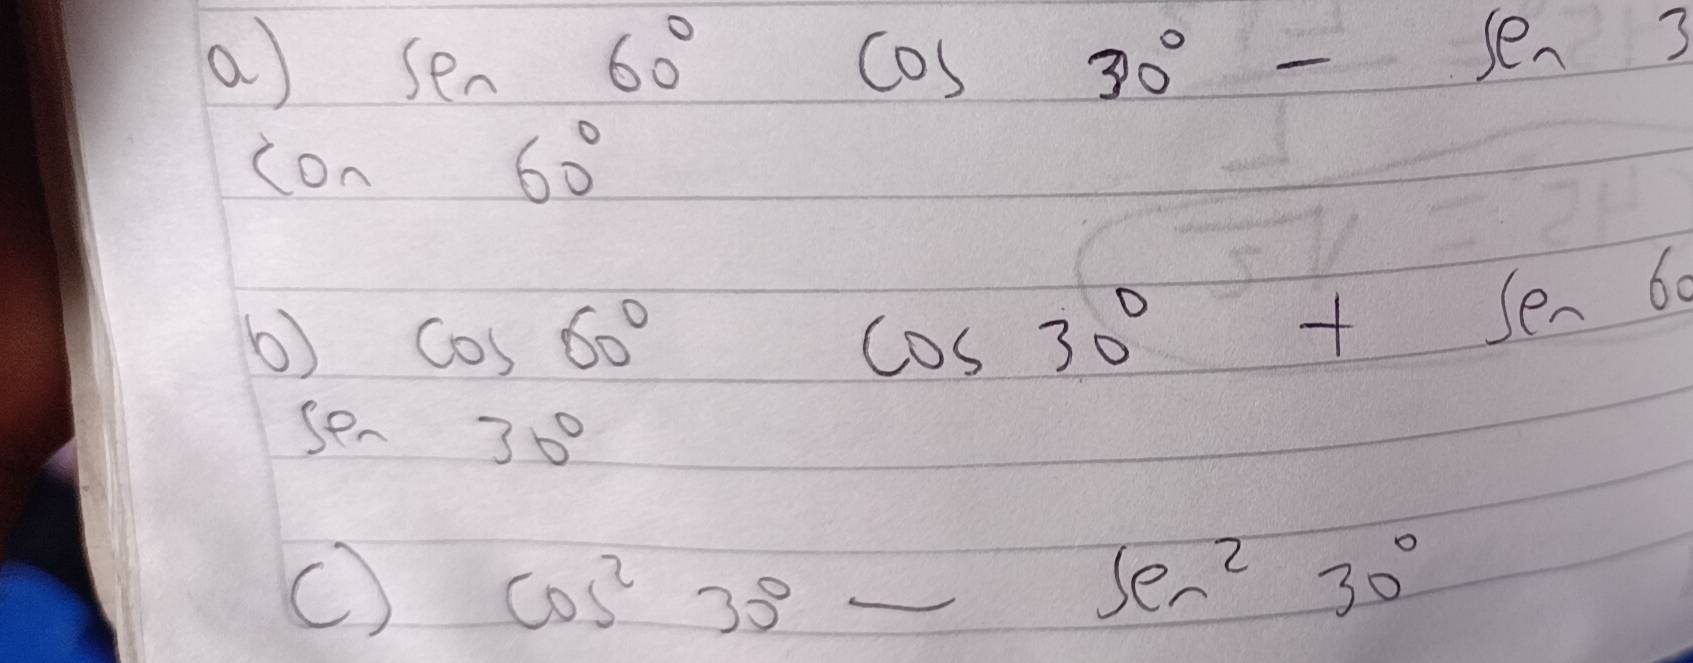 a) sen 60° cos 30° - sen 3
con 60°
b) cos 60° cos 30° + sen 60
sen 30°
c) cos² 30° - sen² 30°